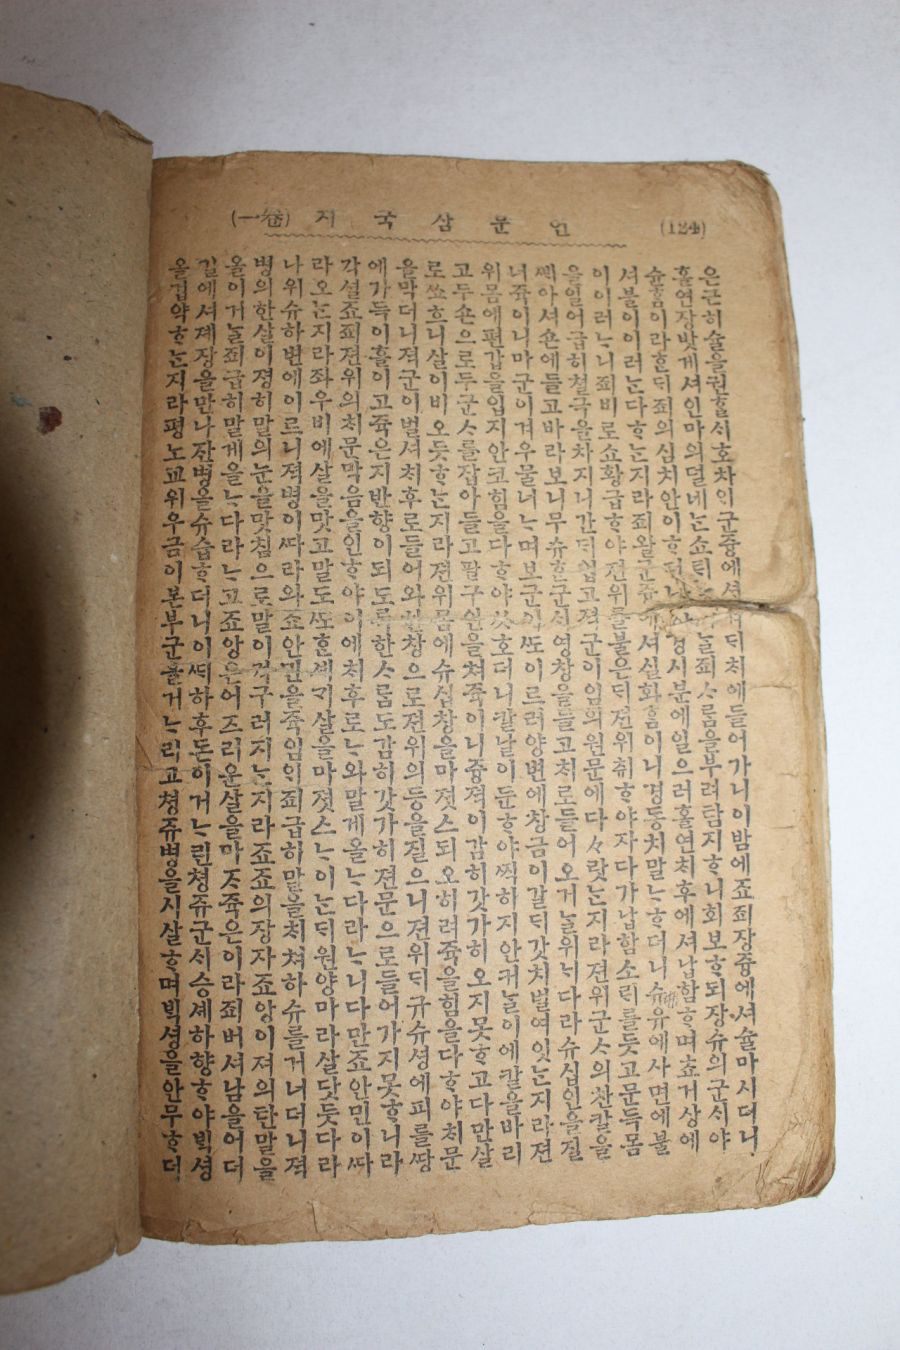 언문삼국지 (一卷) (124)
은근히 슐을 권ᄒᆞᆯᄉᆡ 호차ᄋᆡ 군즁에 셔 치에 들어가니 이 밤에 죠죄 장즁에셔 슐마시더니
홀연 장밧게셔 인마의 덜네ᄂᆞᆫ 쇼ᄅᆡ ᄂᆞᆯ 죄 ᄉᆞᄅᆞᆷ을 부려 탐지ᄒᆞ니 회보ᄒᆞ되 장슈의 군ᄉᆡ 야
슌ᄒᆞᆷ이라 ᄒᆞᆫᄃᆡ 죄의심치 안이ᄒᆞ 경시분에 일으러 홀연 치후에셔 납함ᄒᆞ며 쵸거상에
셔 불이 이러ᄂᆞᆫ다 ᄒᆞᄂᆞᆫ지라 죄왈 군즁에셔 실화ᄒᆞᆷ이니 경동치 말ᄂᆞᄒᆞ더니 슈유에 사면에 불
이 이러ᄂᆞ니 죄 비로쇼 황급ᄒᆞ야 젼위를 불은ᄃᆡ 젼위 취ᄒᆞ야 자다가 납함소ᄅᆡ를 듯고 문득 몸
을 일어 급히 쳘극을 차지니 간ᄃᆡ 업고 젹군이 임의 원문에 다々랏ᄂᆞᆫ지라 젼위 군ᄉᆞ의 찬 칼을
ᄲᅦ아셔 숀에 들고 바라보니 무슈ᄒᆞᆫ 군ᄉᆡ 영창을 들고 치로 들어오거ᄂᆞᆯ 위 ᄂᆡ다라 슈십인을 질
너 쥭이니 마군이 겨우 물너ᄂᆞ며 보군이 ᄯᅩ 이르러 양변에 창금이 갈ᄃᆡ갓치 벌여 잇ᄂᆞᆫ지라 젼
위 몸에 편갑을 입지 안코 힘을 다ᄒᆞ야 싸호더니 칼날이 둔ᄒᆞ야 찍히지 안커ᄂᆞᆯ 이에 칼을 바리
고 두 숀으로 두 군ᄉᆞ를 잡아 들고 팔구인을 쳐쥭이니 즁젹이 감히 갓가히 오지 못ᄒᆞ고 다만 살
로 쏘흐니 살이 비오듯 ᄒᆞᄂᆞᆫ지라 젼위 몸에 슈십창을 마졋스되 오히려 쥭을힘을 다ᄒᆞ야 치문
을 막더니 젹군이 벌셔 치후로 들어와 창으로 젼위의 등을 질으니 젼위 ᄃᆡ규 슈셩에 피를 ᄯᅡᆼ
에 가득이 흘이고 쥭은지 반향이 되도록 한 ᄉᆞᄅᆞᆷ도 감히 갓가히 젼문으로 들어가지 못ᄒᆞ니라
각셜 죠죄 젼위의 치문 막음을 인ᄒᆞ야 이에 치후로 ᄂᆞ와 말게 올ᄂᆞ 다라ᄂᆞ니 다만 죠안민이 ᄯᅡ
라오ᄂᆞᆫ지라 좌우비에 살을 맛고 말도 ᄯᅩᄒᆞᆫ 세 ᄀᆡ 살을 마졋스ᄂᆞ 이ᄂᆞᆫ ᄃᆡ원양마라 살닷듯 다라
나 위슈하변에 이르니 젹병이 ᄯᅡ라와 죠안민을 쥭임ᄋᆡ 죄 급히 말을 치쳐 하슈를 거너더니 젹
병의 한 살이 졍히 말의 눈을 맛침으로 말이 것구러지ᄂᆞᆫ지라 죠죠의 장자 죠앙이 져의 탄 말을
올이거ᄂᆞᆯ 죄 급히 말게 올ᄂᆞ 다라ᄂᆞ고 죠앙은 어즈러운 살을 마ᄌᆞ 쥭은이라 죄 버셔남을 어더
길에셔 졔장을 만나 잔병을 슈습ᄒᆞ더니 이 ᄯᅢ 하후돈이 거ᄂᆞ린 쳥쥬군ᄉᆡ 승셰하향ᄒᆞ야 ᄇᆡᆨ셩
을 겁약ᄒᆞᄂᆞᆫ지라 평노교위 우금이 본부군를 거ᄂᆞ리고 쳥쥬병을 시살ᄒᆞ며 ᄇᆡᆨ셩을 안무ᄒᆞ더